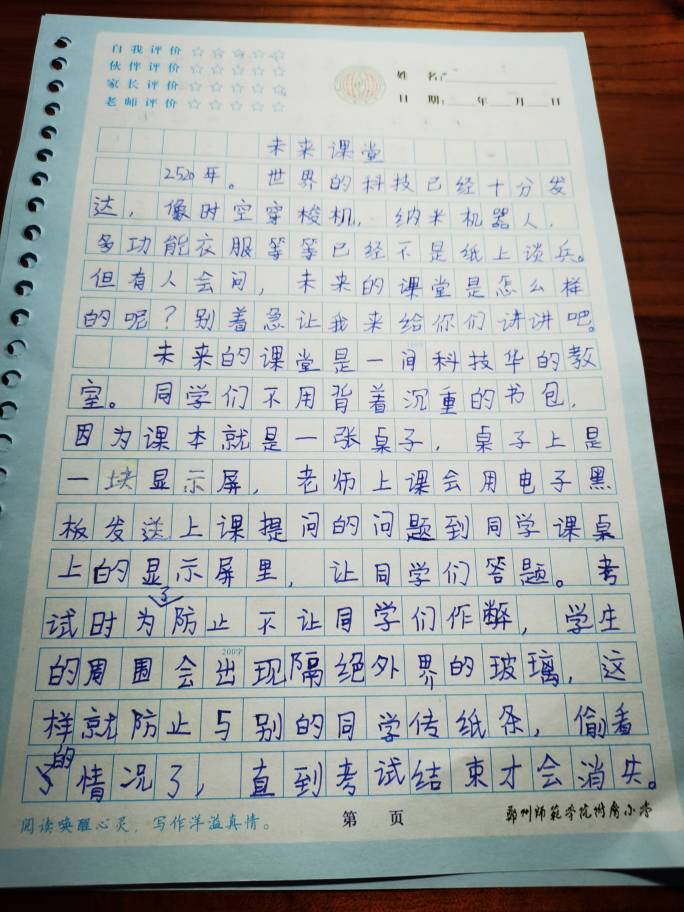 自我评价 ☆☆☆☆☆
伙伴评价 ☆☆☆☆☆
家长评价 ☆☆☆☆☆
老师评价 ☆☆☆☆☆
姓 名:
日 期: 年 月 日
未来课堂
2520年。世界的科技已经十分发
达，像时空穿梭机，纳米机器人，
多功能衣服等等已经不是纸上谈兵。
但有人会问，未来的课堂是怎么样
的呢？别着急让我来给你们讲讲吧。
未来的课堂是一间科技华的教
室。同学们不用背着沉重的书包，
因为课本就是一张桌子，桌子上是
一块显示屏，老师上课会用电子黑
板发送上课提问的问题到同学课桌
上的显示屏里，让同学们答题。考
试时为了防止不让同学们作弊，学生
200字
的周围会出现隔绝外界的玻璃，这
样就防止与别的同学传纸条，偷看
的情况了，直到考试结束才会消失。
阅读唤醒心灵，写作洋溢真情。
第 页
鄂州师范学院附属小学